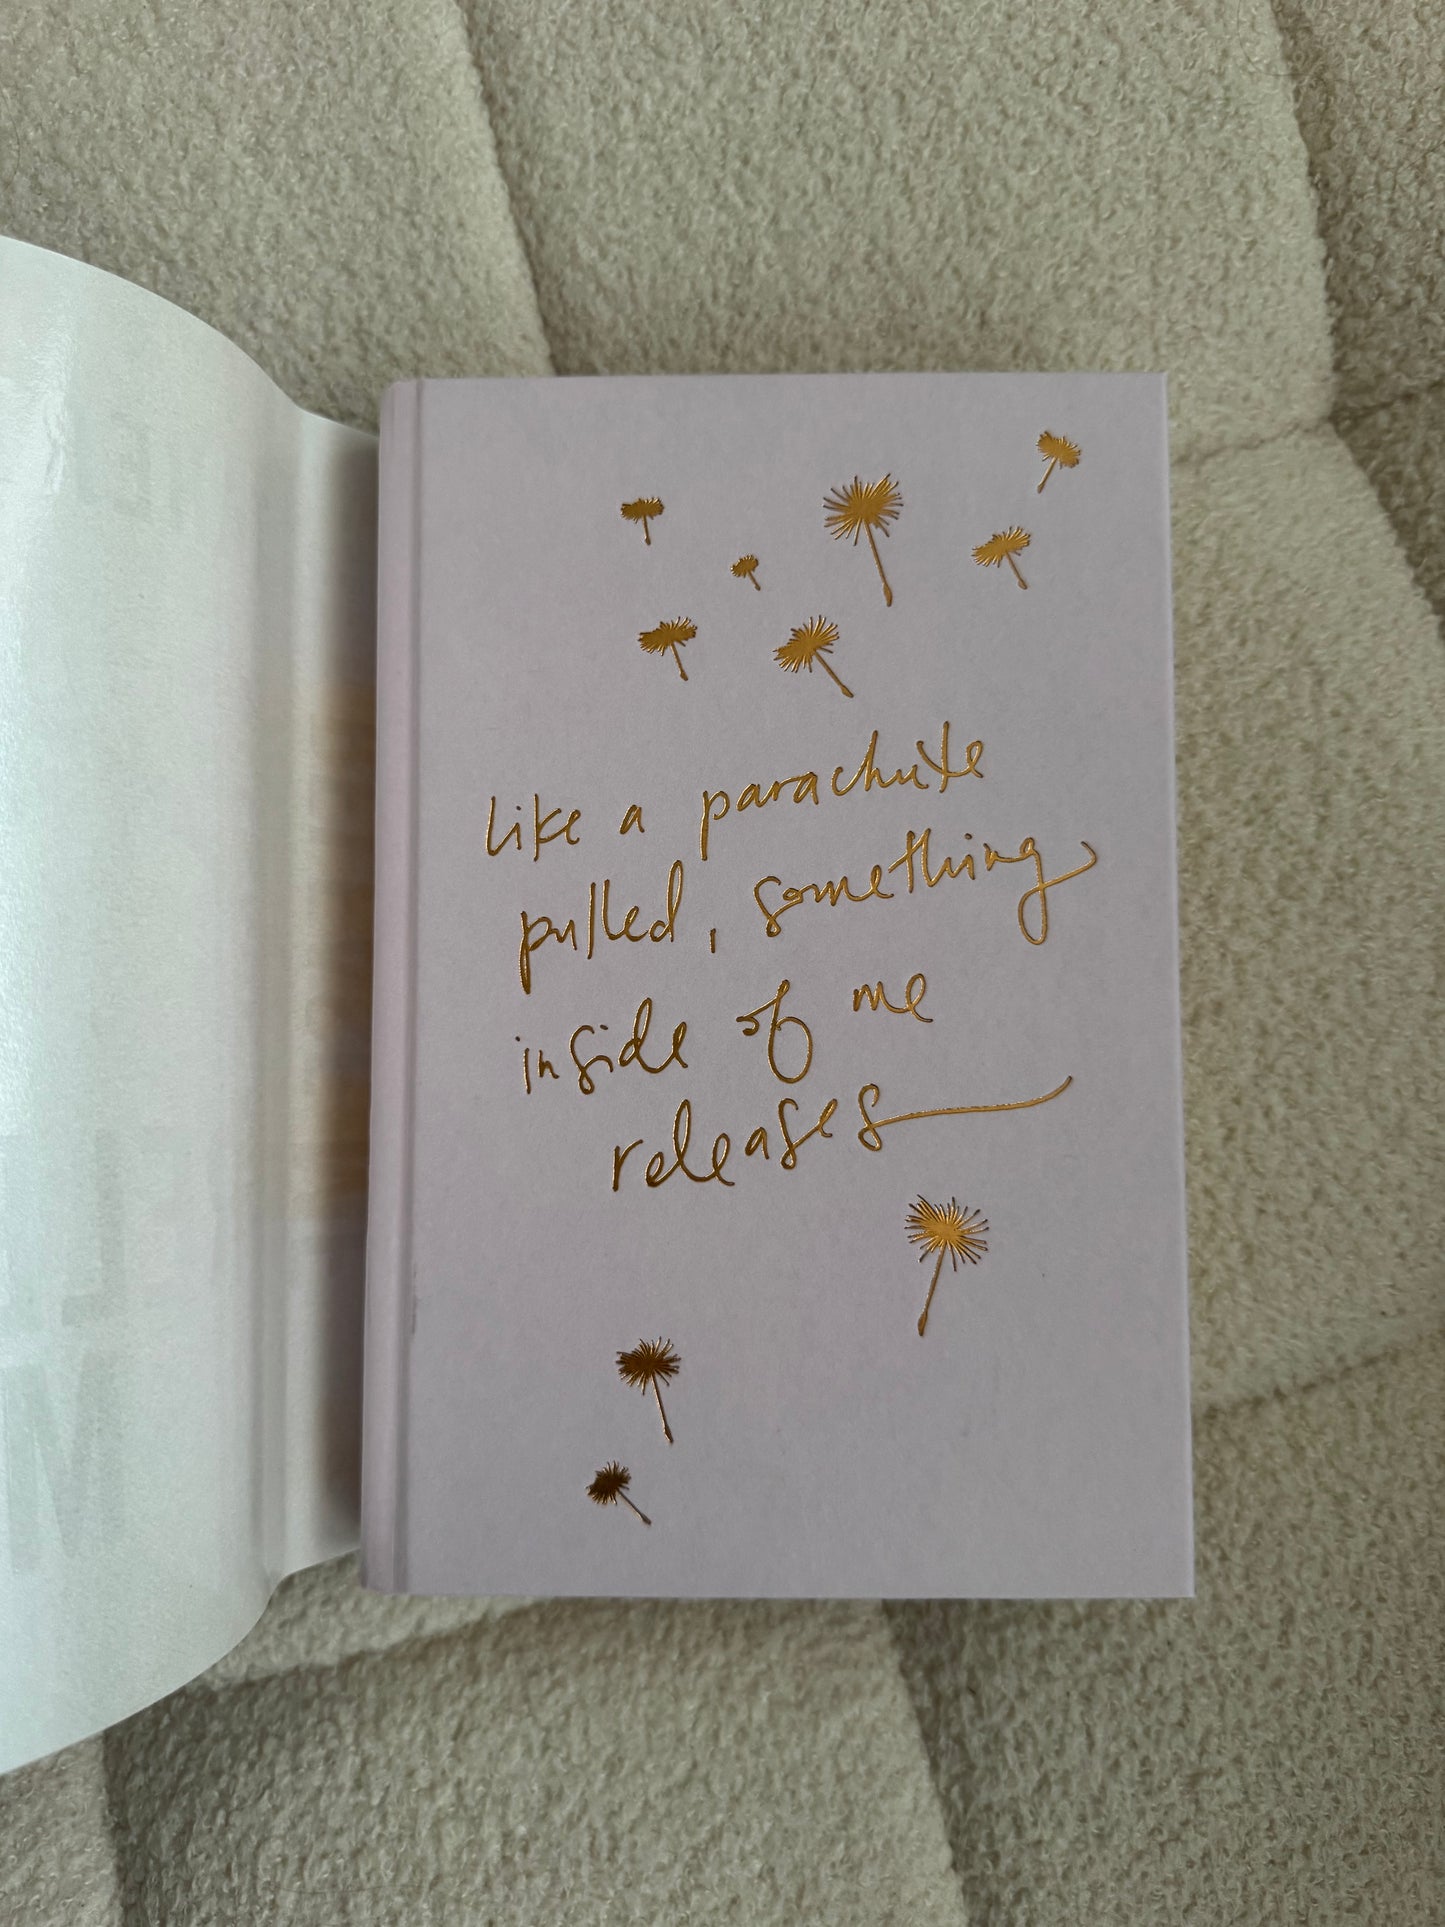 like a parachute
pulled, something
inside of me
releases